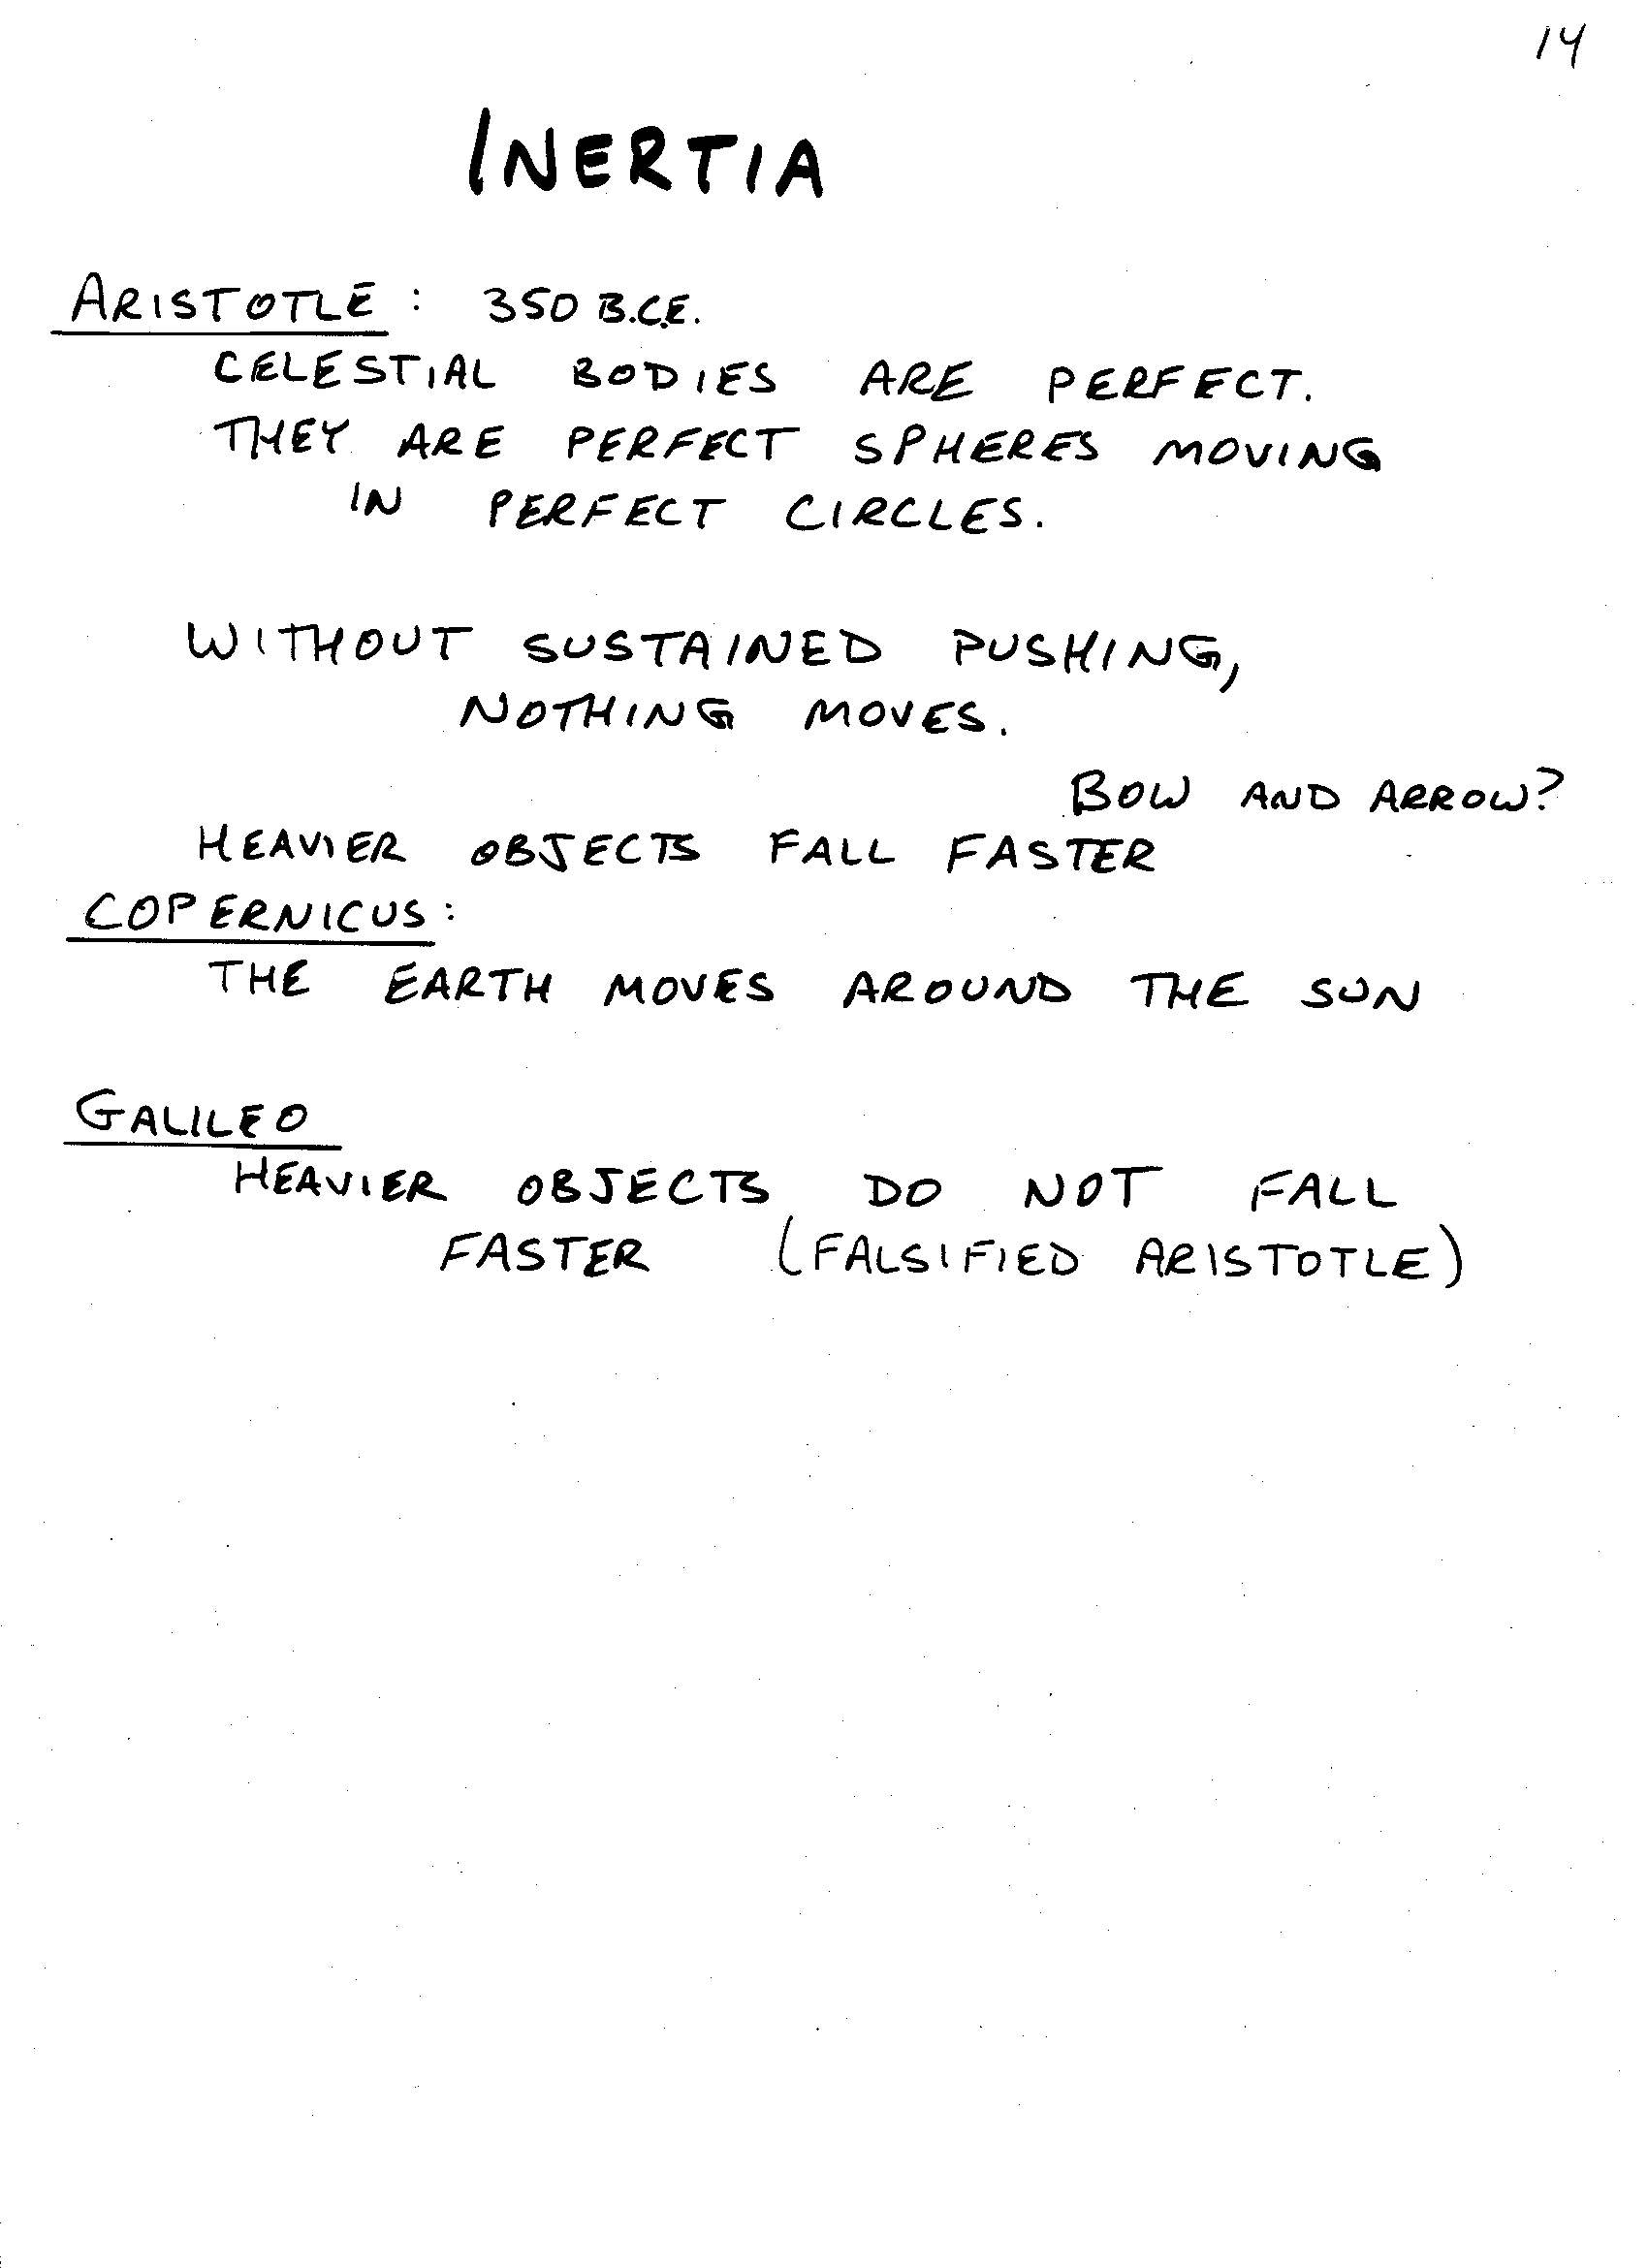 14
INERTIA
ARISTOTLE: 350 B.C.E.
CELESTIAL BODIES ARE PERFECT.
THEY ARE PERFECT SPHERES MOVING
IN PERFECT CIRCLES.
WITHOUT SUSTAINED PUSHING,
NOTHING MOVES.
BOW AND ARROW?
HEAVIER OBJECTS FALL FASTER
COPERNICUS:
THE EARTH MOVES AROUND THE SUN
GALILEO
HEAVIER OBJECTS DO NOT FALL
FASTER (FALSIFIED ARISTOTLE)